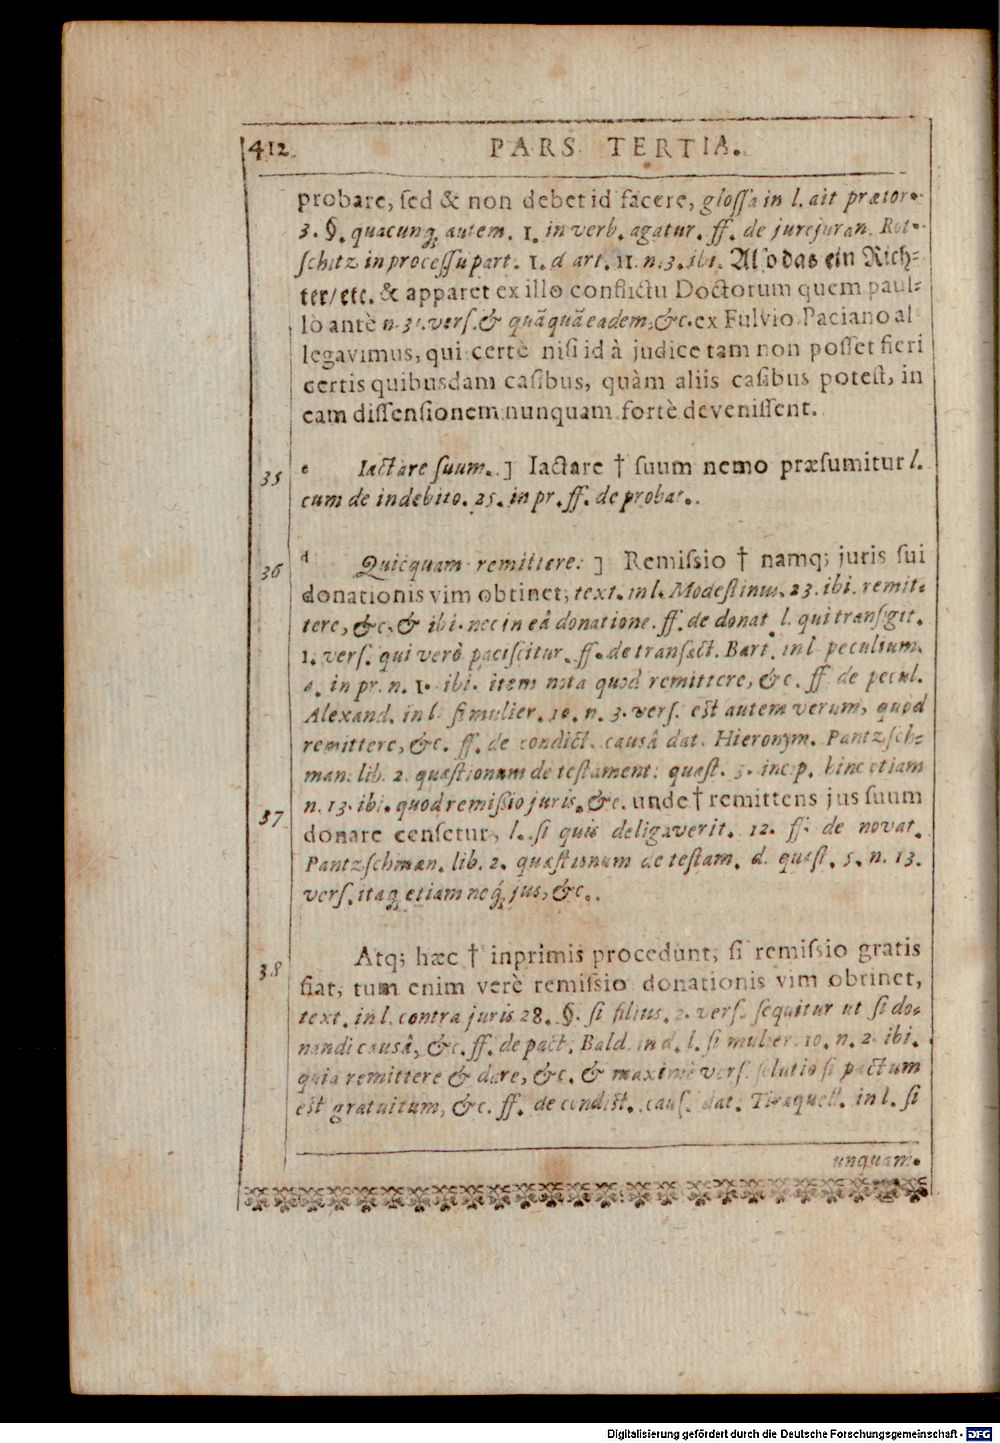 412 PARS TERTIA.
probare, sed & non debet id facere, glossa in l. ait prætor.
3. §. quacunq; autem. 1. in verb. agatur. ff. de jurejuran. Rot-
schitz in processu part. 1. d art. 11. n. 3. ibi. Also das ein Rich-
ter/etc. & apparet ex illo conflictu Doctorum quem paul-
lò antè n. 31. vers. & quãquã eadem, &c. ex Fulvio Paciano al
legavimus, qui certè nisi id à judice tam non posset fieri
certis quibusdam casibus, quàm aliis casibus potest, in
eam dissensionem nunquam fortè devenissent.
35 e Iactare suum.] Iactare † suum nemo præsumitur l.
cum de indebito. 25. in pr. ff. de probat..
36 d Quicquam remittere.] Remissio † namq; juris sui
donationis vim obtinet, text. in l. Modestinus. 23. ibi. remit-
tere, &c. & ibi. nec in eâ donatione. ff. de donat. l. qui transigit.
1. vers. qui verò paciscitur. ff. de transact. Bart. in l peculium.
4. in pr. n. 1. ibi. item nota quod remittere, &c. ff de pecul.
Alexand. in l. si mulier. 10. n. 3. vers. est autem verum, quod
remittere, &c. ff. de condict. causâ dat. Hieronym. Pantzsch-
man. lib. 2. quæstionum de testament. quæst. 5. incip. hinc etiam
n. 13. ibi. quod remissio juris, &c. unde † remittens jus suum
37 donare censetur, l. si quis deligaverit. 12. ff. de novat.
Pantzschman. lib. 2. quæstionum de testam. d. quæst. 5. n. 13.
vers. itaq; etiam neq; jus, &c..
Atq; hæc † inprimis procedunt, si remissio gratis
38 fiat, tum enim verè remissio donationis vim obtinet,
text. in l. contra juris 28. §. si filius. 2. vers. sequitur ut si do-
nandi causâ, &c. ff. de pact. Bald. in d. l. si mulier. 10. n. 2. ibi.
quia remittere & dare, &c. & maximè vers. solutio si pactum
est gratuitum, &c. ff. de condict. caus. dat. Tiraquell. in l. si
unquam.
Digitalisierung gefördert durch die Deutsche Forschungsgemeinschaft - DFG